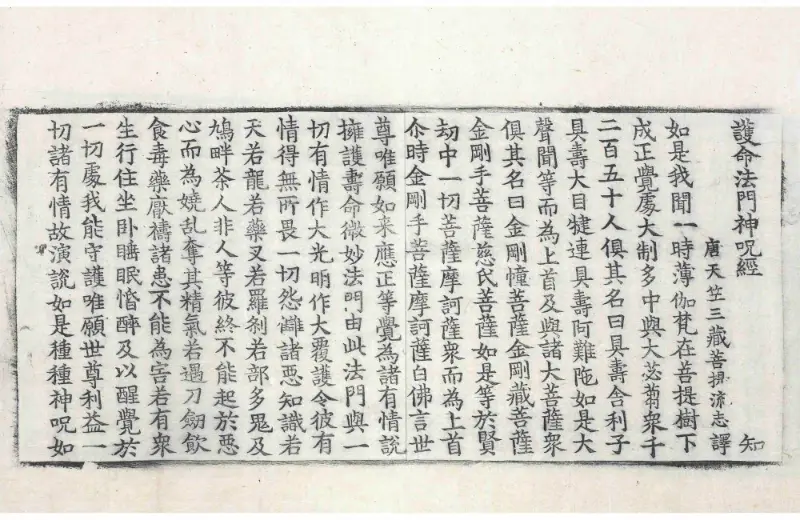 護命法門神呪經　知
唐天竺三藏菩提流志譯
如是我聞一時薄伽梵在菩提樹下
成正覺處大制多中與大苾芻衆千
二百五十人俱其名曰具壽舍利子
具壽大目揵連具壽阿難陁如是大
聲聞等而為上首及與諸大菩薩衆
俱其名曰金剛幢菩薩金剛藏菩薩
金剛手菩薩慈氏菩薩如是等於賢
劫中一切菩薩摩訶薩衆而為上首
尒時金剛手菩薩摩訶薩白佛言世
尊唯願如来應正等覺為諸有情說
擁護壽命微妙法門由此法門與一
切有情作大光明作大覆護令彼有
情得無所畏一切怨讎諸惡知識若
天若龍若藥叉若羅刹若部多鬼及
鳩畔茶人非人等彼終不能起於惡
心而為嬈乱奪其精氣若遇刀劒飲
食毒藥厭禱諸患不能為害若有衆
生行住坐卧睡眠惛醉及以醒覺於
一切處我能守護唯願世尊利益一
切諸有情故演說如是種種神呪如